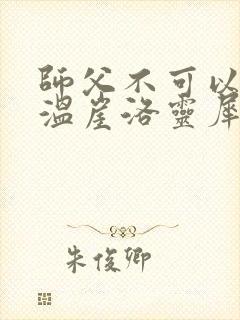 師父不可以
溫崖洛靈犀
朱俊卿